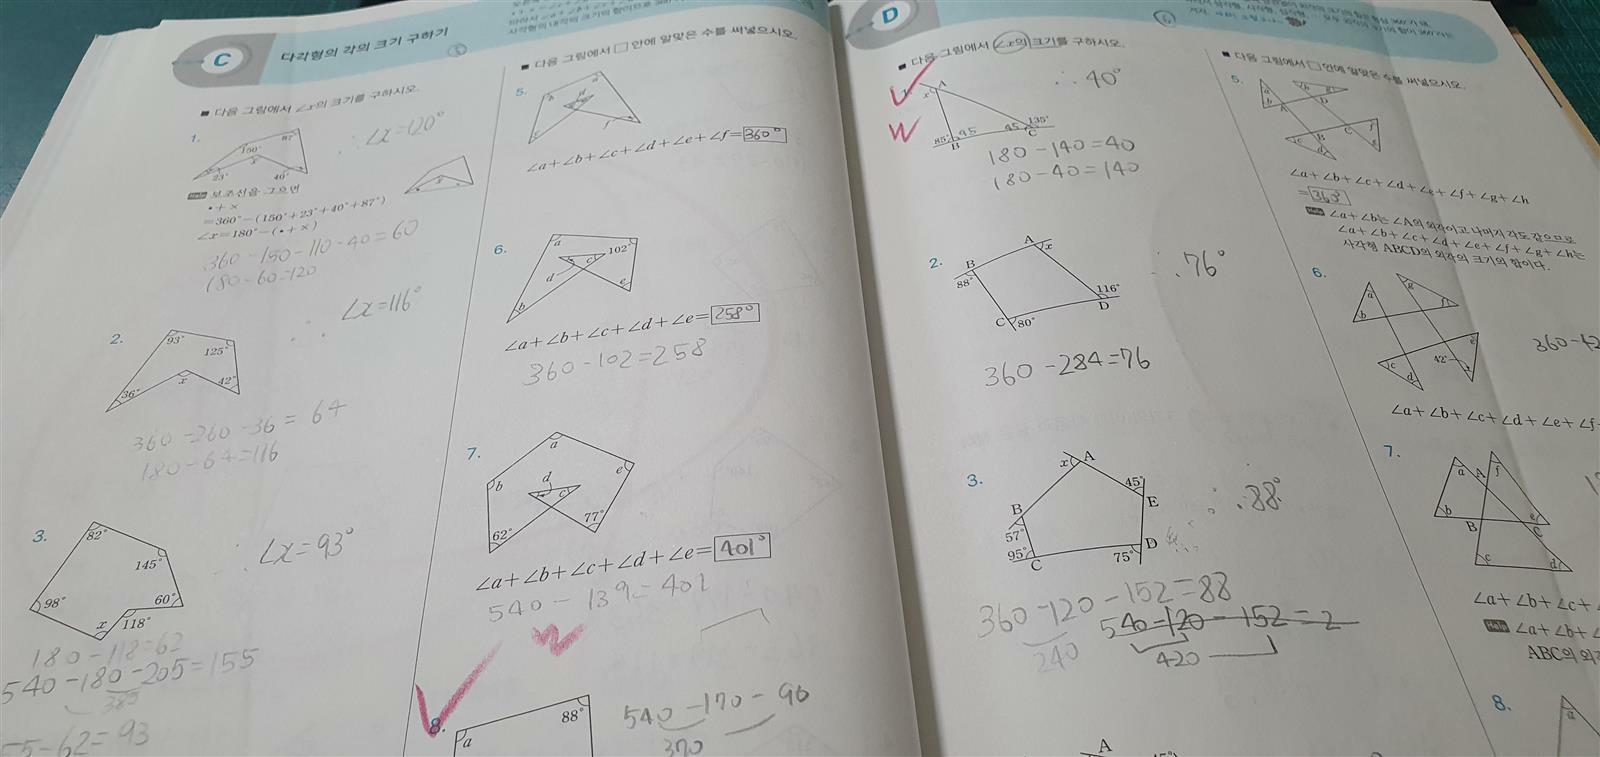 C
다각형의 각의 크기 구하기
■ 다음 그림에서 ∠x의 크기를 구하시오.
1.
150°
87°
x
23°
40°
∴ ∠x=120°
Help 보조선을 그으면
•+×
=360°-(150°+23°+40°+87°)
∠x=180°-(•+×)
360-150-110-40=60
180-60=120
2.
93°
125°
x
36°
42°
∴ ∠x=116°
360-260-36=64
180-64=116
3.
82°
145°
98°
60°
x
118°
∴ ∠x=93°
180-118=62
540-180-205=155
385
55-62=93
■ 다음 그림에서 □ 안에 알맞은 수를 써넣으시오.
5.
a
b
c
f
∠a+∠b+∠c+∠d+∠e+∠f=360°
6.
a
102°
c
d
e
b
∠a+∠b+∠c+∠d+∠e=258°
360-102=258
7.
a
b
d
e
c
62°
77°
∠a+∠b+∠c+∠d+∠e=401°
540-139=401
8.
a
88°
540-170-90
370
D
■ 다음 그림에서 ∠x의 크기를 구하시오.
A
x
85°
95
45
135°
B
C
∴ 40°
180-140=40
180-40=140
2.
A
x
B
88°
116°
D
C
80°
∴ 76°
360-284=76
3.
x
A
45°
E
B
57°
95°
C
75°
D
∴ 88°
360-120-152=88
240
540-120-152=2
420
A
■ 다음 그림에서 □ 안에 알맞은 수를 써넣으시오.
5.
a
b
A
h
g
D
B
C
c
d
f
e
∠a+∠b+∠c+∠d+∠e+∠f+∠g+∠h
=363°
Help ∠a+∠b는 ∠A의 외각이고 나머지 각도 같으므로
∠a+∠b+∠c+∠d+∠e+∠f+∠g+∠h는
사각형 ABCD의 외각의 크기의 합이다.
6.
a
b
g
f
c
d
42°
e
360-42
∠a+∠b+∠c+∠d+∠e+∠f+
7.
a
A
f
b
B
C
e
c
d
∠a+∠b+∠c+
Help ∠a+∠b+
ABC의 외각
8.
a